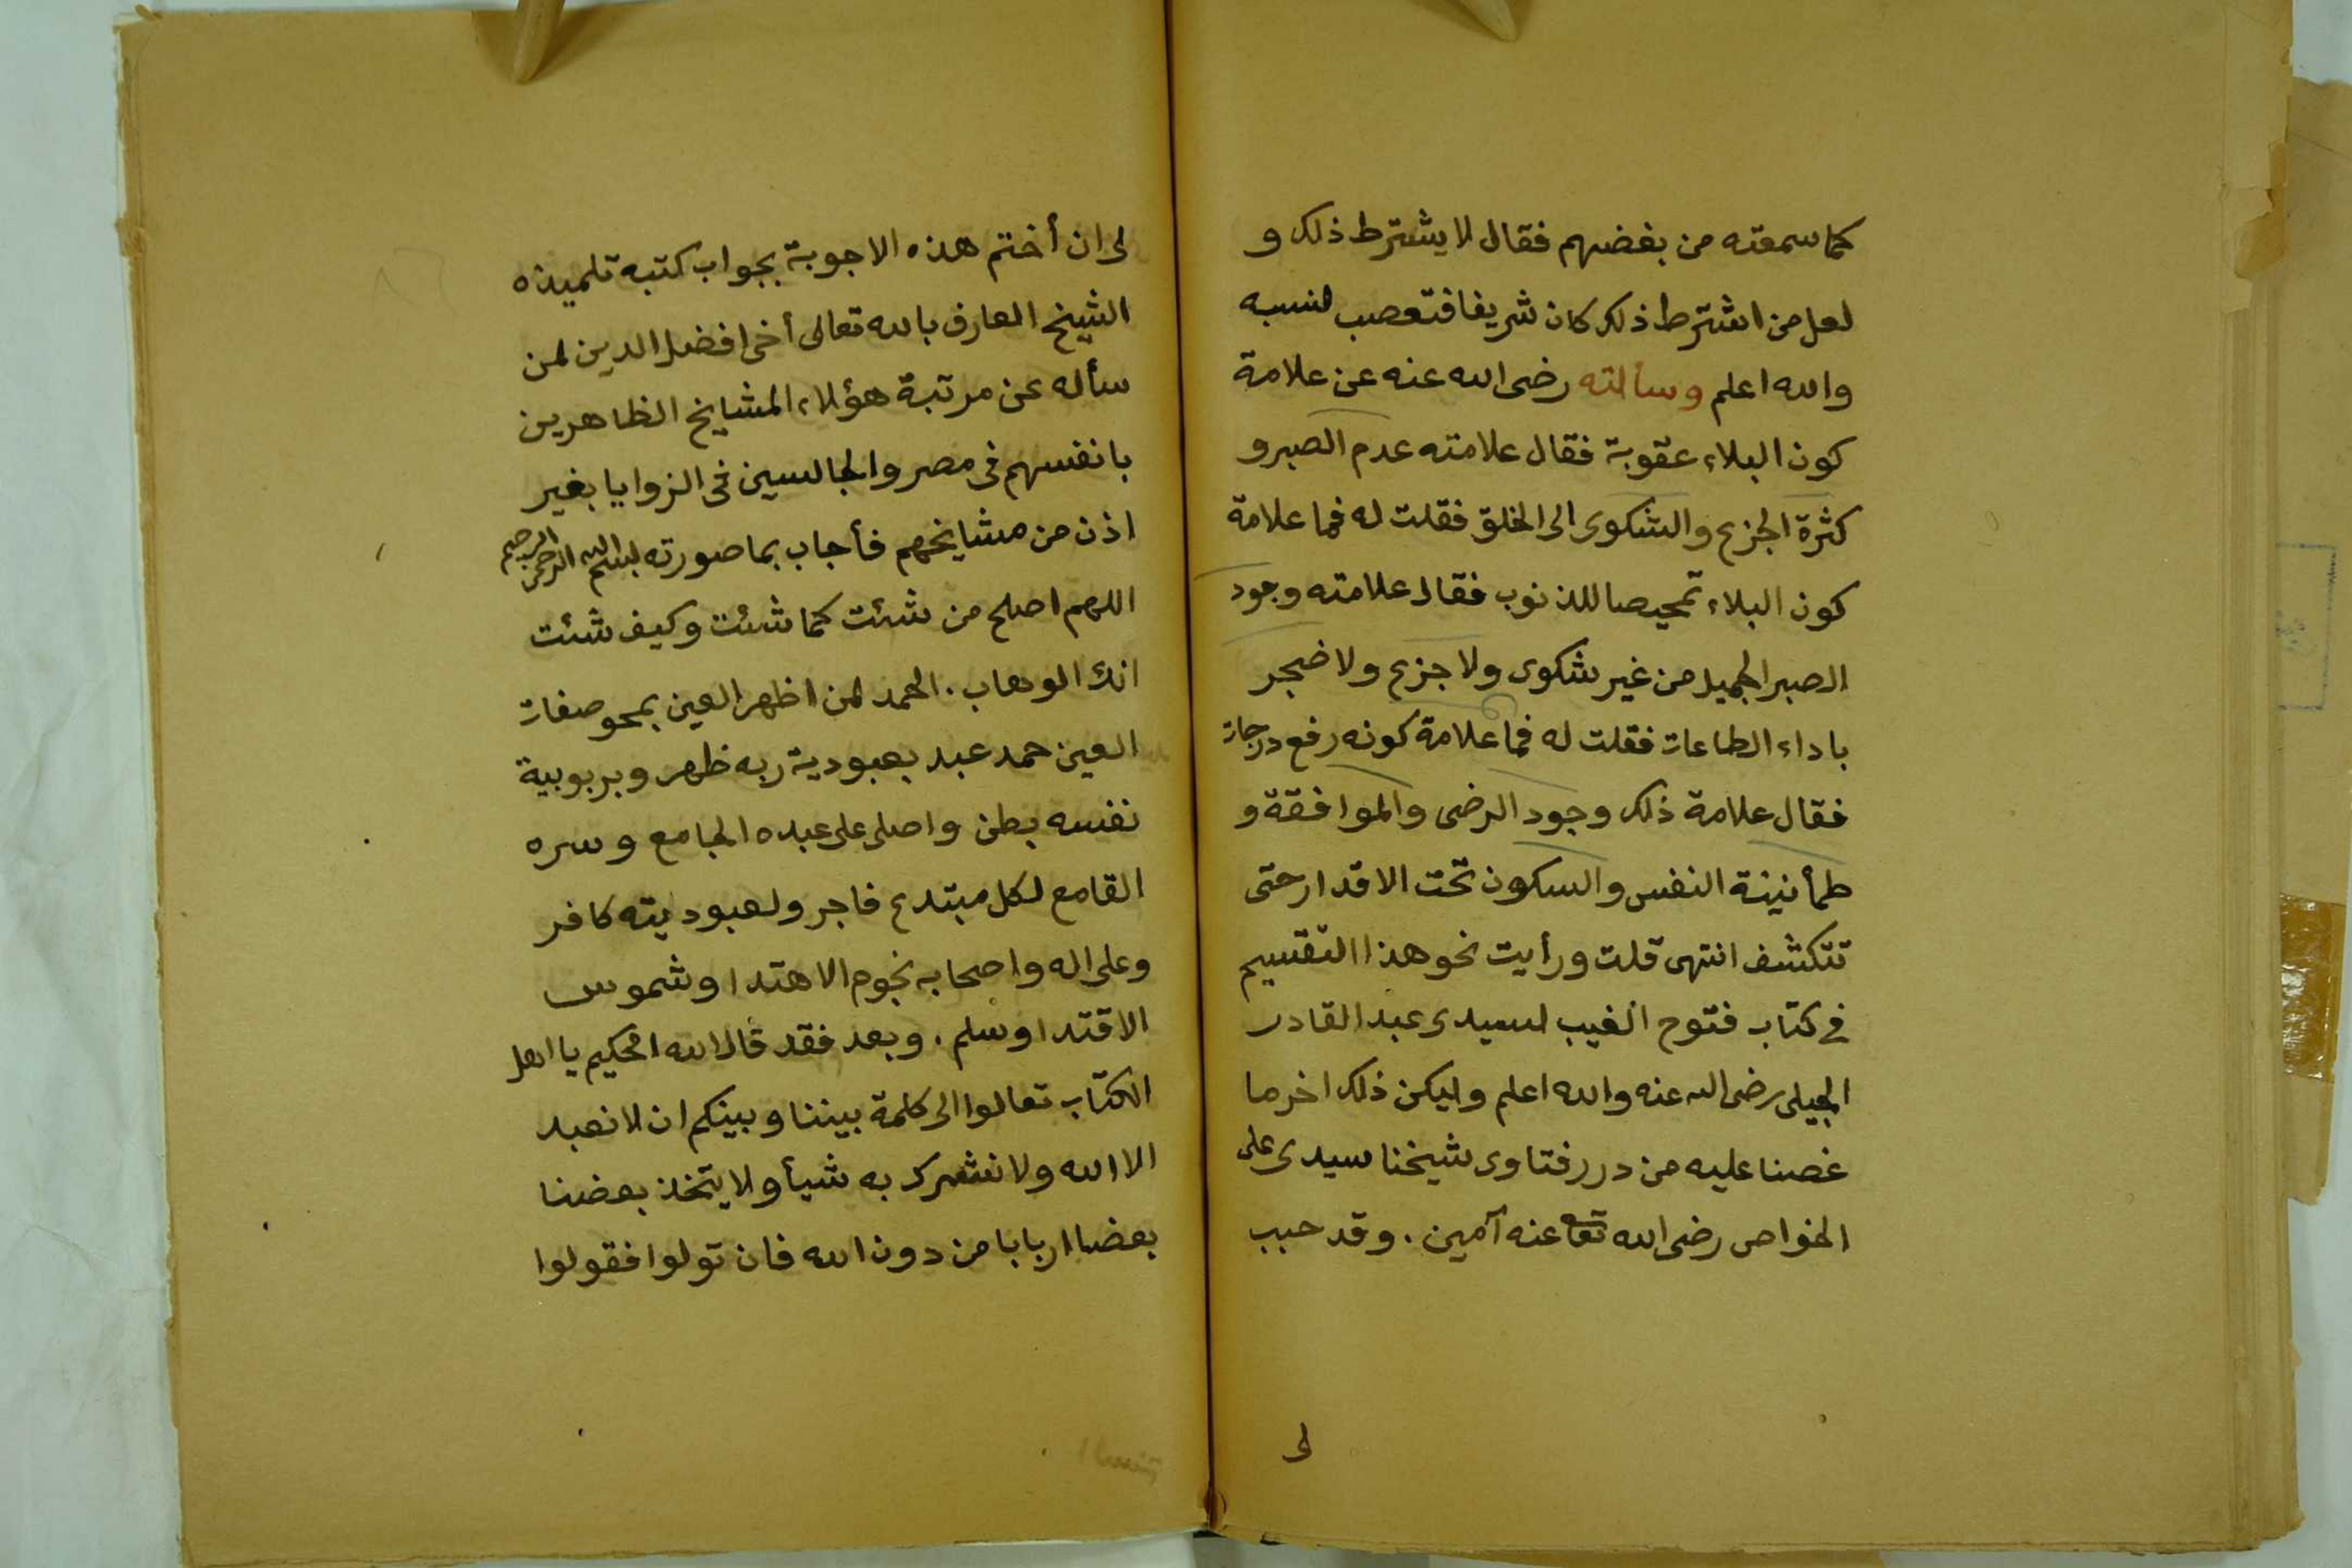 كما سمعته من بعضهم فقال لا يشترط ذلك و
لعل من اشترط ذلك كان شريفا فتعصب لنسبه
والله اعلم وسألته رضى الله عنه عن علامة
كون البلاء عقوبة فقال علامته عدم الصبر و
كثرة الجزع والشكوى الى الخلق فقلت له فما علامة
كون البلاء تمحيصا للذنوب فقال علامته وجود
الصبر الجميل من غير شكوى ولا جزع ولا ضجر
باداء الطاعات فقلت له فما علامة كونه رفع درجات
فقال علامة ذلك وجود الرضى والموافقة و
طمأنينة النفس والسكون تحت الاقدار حتى
تنكشف انتهى قلت ورأيت نحو هذا التقسيم
فى كتاب فتوح الغيب لسيدى عبد القادر
الجيلى رضى الله عنه والله اعلم وليكن ذلك اخر ما
غصنا عليه من درر فتاوى شيخنا سيدى على
الخواص رضى الله تعا عنه آمين . وقد حبب
لى
لى ان أختم هذه الاجوبة بجواب كتبه تلميذه
الشيخ العارف بالله تعالى أخى افضل الدين لمن
سأله عن مرتبة هؤلاء المشايخ الظاهرين
بانفسهم فى مصر والجالسين فى الزوايا بغير
اذن من مشايخهم فأجاب بما صورته بسم الله الرحمن الرحيم
اللهم اصلح من شئت كما شئت وكيف شئت
انك الوهاب . الحمد لمن اظهر العين بمحو صفات
العين حمد عبد بعبودية ربه ظهر وبربوبية
نفسه بطن واصلى على عبده الجامع وسره
القامع لكل مبتدع فاجر ولعبوديته كافر
وعلى اله واصحابه نجوم الاهتدا وشموس
الاقتدا وسلم . وبعد فقد قال الله الحكيم يا اهل
الكتاب تعالوا الى كلمة بيننا وبينكم ان لا نعبد
الا الله ولا نشرك به شيأ ولا يتخذ بعضنا
بعضا اربابا من دون الله فان تولوا فقولوا